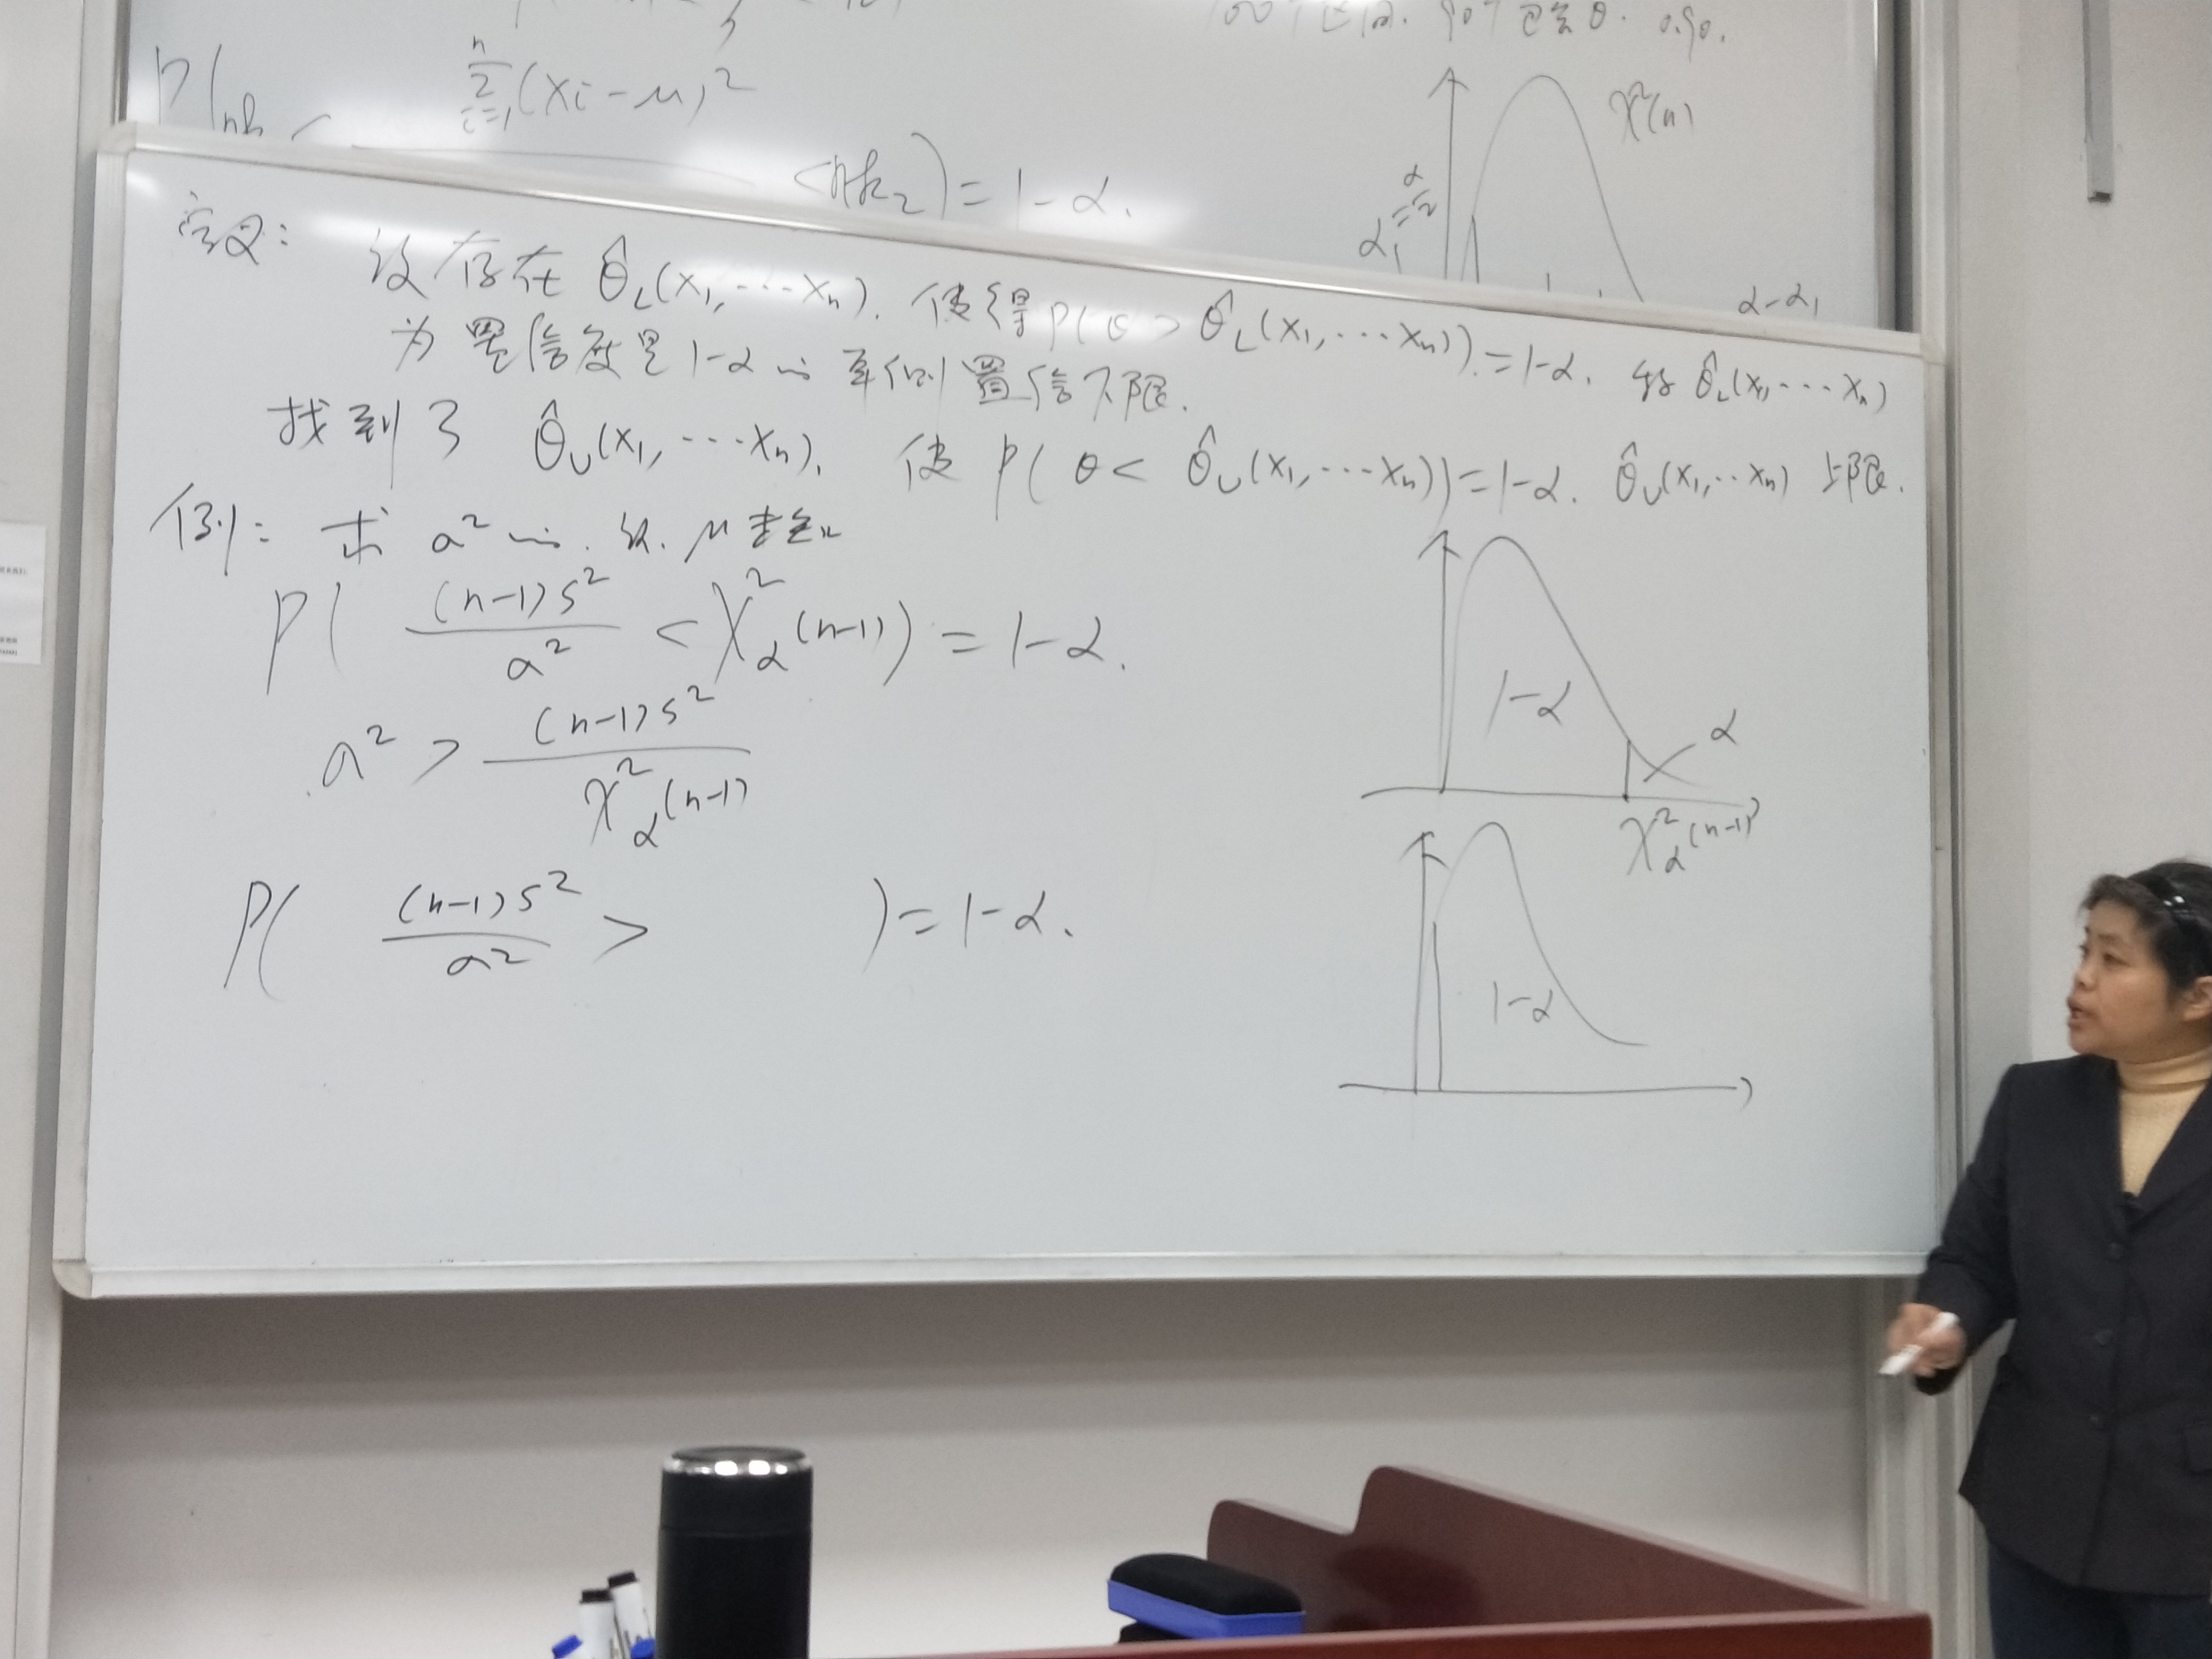 100个区间. 90个包含θ. 0.90.
P(nk₁ < Σᵢ₌₁ⁿ(Xi-μ)² <nk₂)=1-α.
χ²(n)
α₁=α/2
α-α₁
定义: 设存在 θ̂_L(x₁,⋯xₙ). 使得P(θ > θ̂_L(x₁,⋯xₙ))=1-α. 称 θ̂_L(x₁,⋯xₙ)
为置信度是1-α的单侧置信下限.
找到了 θ̂_U(x₁,⋯xₙ). 使 P(θ< θ̂_U(x₁,⋯xₙ))=1-α. θ̂_U(x₁,⋯xₙ) 上限.
例: 求 a² 的. μ未知
P( (n-1)S²/a² < χ²_α(n-1)) = 1-α.
a² > (n-1)S²/χ²_α(n-1)
P( (n-1)S²/a² > )=1-α.
1-α
α
χ²_α(n-1)
1-α